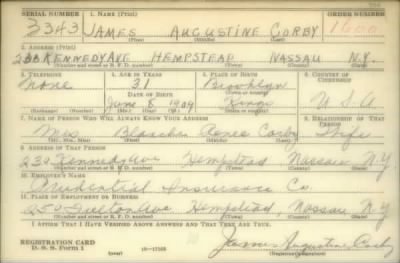 SERIAL NUMBER 1. NAME (Print) ORDER NUMBER
3343 JAMES AUGUSTINE CORBY 1600
(First) (Middle) (Last)
2. ADDRESS (Print)
230 KENNEDY AVE HEMPSTEAD NASSAU N.Y.
(Number and street or R. F. D. number) (Town) (County) (State)
3. TELEPHONE 4. AGE IN YEARS 5. PLACE OF BIRTH 6. COUNTRY OF CITIZENSHIP
None 31 Brooklyn
DATE OF BIRTH (Town or county)
June 8 1909 Kings U S A
(Exchange) (Number) (Mo.) (Day) (Yr.) (State or country)
7. NAME OF PERSON WHO WILL ALWAYS KNOW YOUR ADDRESS 8. RELATIONSHIP OF THAT PERSON
Mrs Blanche Renee Corby Wife
(Mr., Mrs., Miss) (First) (Middle) (Last)
9. ADDRESS OF THAT PERSON
230 Kennedy Ave Hempstead Nassau N.Y.
(Number and street or R. F. D. number) (Town) (County) (State)
10. EMPLOYER'S NAME
Prudential Insurance Co.
11. PLACE OF EMPLOYMENT OR BUSINESS
250 Fulton Ave Hempstead, Nassau N.Y
(Number and street or R. F. D. number) (Town) (County) (State)
I AFFIRM THAT I HAVE VERIFIED ABOVE ANSWERS AND THAT THEY ARE TRUE.
REGISTRATION CARD
D. S. S. Form 1 (over) 16—17105 James Augustine Corby
(Registrant's signature)